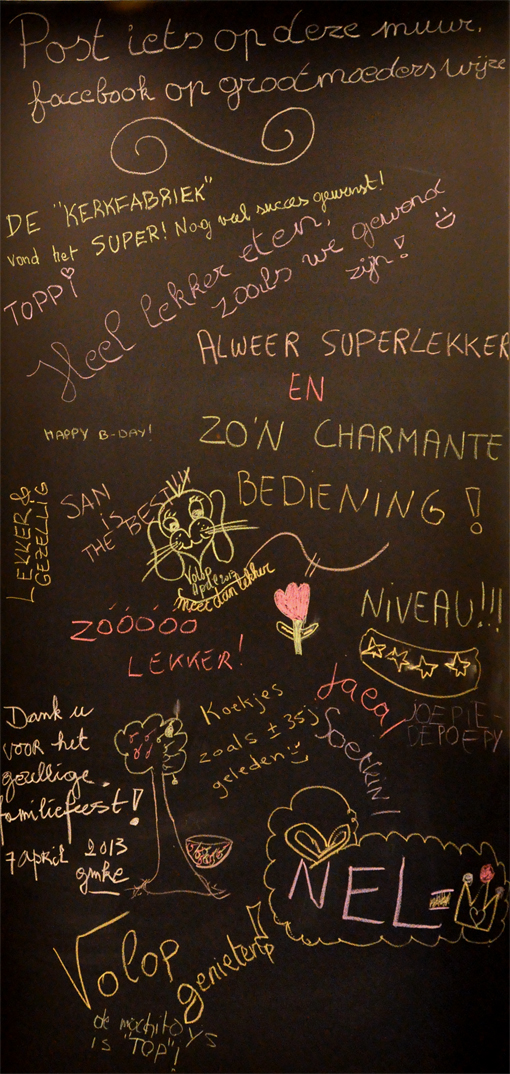 Post iets op deze muur,
facebook op grootmoeders wijze
DE "KERKFABRIEK"
vond het SUPER! Nog veel succes gewenst!
TOPPi
Heel lekker eten,
zoals we gewend
zijn!
ALWEER SUPERLEKKER
EN
ZO'N CHARMANTE
BEDIENING!
HAPPY B-DAY!
LEKKER &
GEZELLIG
SAN
is
THE BEST!!!
Volop
Meer dan lekker
NiVEAU!!!
ZÓÓÓÓO
LEKKER!
JOEPIE-
DEPOEPY
Koekjes
zoals ± 35j
geleden
Dank u
voor het
gezellige
familiefeest!
7 April 2013
gmke
NEL=
Volop
genieten!
de mochito's
is "TOP"!